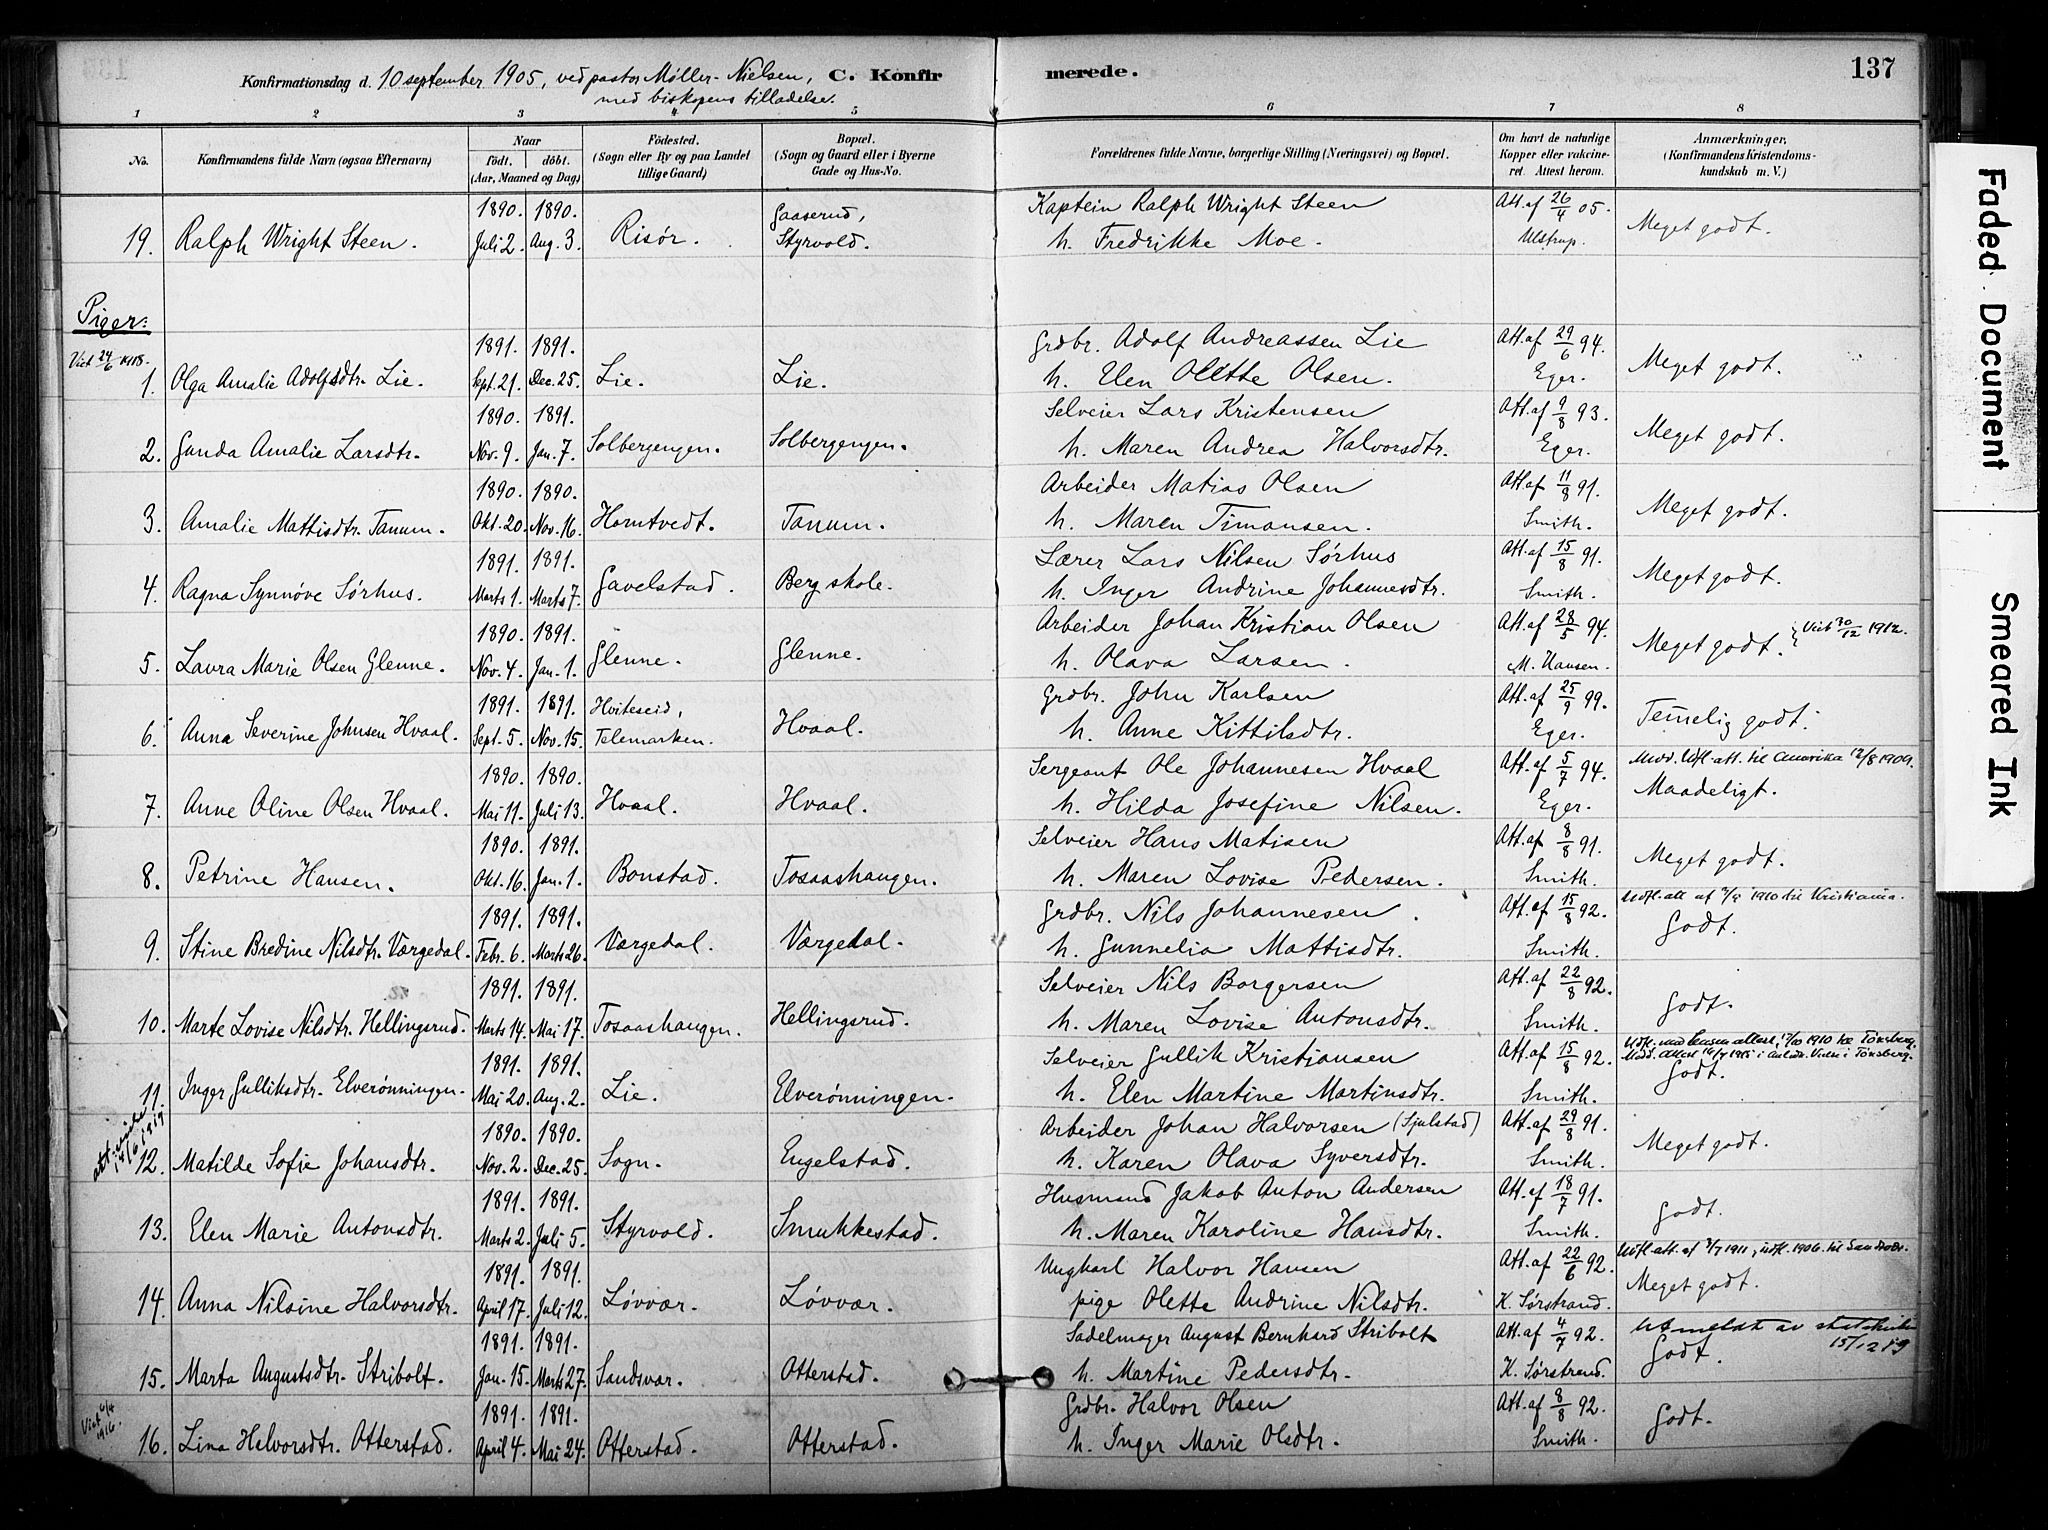 Konfirmationsdag d. 10 september 1905, ved pastor Møller-Nielsen, C. Konfirmerede. 137
med biskopens tilladelse.
1 2 3 4 5 6 7 8
No. Konfirmandens fulde Navn (ogsaa Efternavn) Naar født. døbt. (Aar, Maaned og Dag) Födested. (Sogn eller By og paa Landet tillige Gaard) Bopæl. (Sogn og Gaard eller i Byerne Gade og Hus-No. Forældrenes fulde Navne, borgerlige Stilling (Næringsvei) og Bopæl. Om havt de naturlige Kopper eller vakcineret. Attest herom. Anmærkninger, (Konfirmandens Kristendomskundskab m. V.)
1890. 1890. Gaaserud, Kaptein Ralph Wright Steen Att. af 26/4 05.
19. Ralph Wright Steen. Juli 2. Aug. 3. Risør. Styrvold. h. Fredrikke Moe. Ulstrup. Meget godt.
Piger:
Viet 24/6
1891. 1891. Grdbr. Adolf Andreassen Lie Att. af 29/6 94.
1. Olga Amalie Adolfsdtr. Lie. Sept. 21. Dec. 25. Lie. Lie. h. Elen Olette Olsen. Eger. Meget godt.
1890. 1891. Selveier Lars Kristensen Att. af 9/8 93.
2. Gunda Amalie Larsdtr. Nov. 9. Jan. 7. Solbergengen. Solbergengen. h. Maren Andrea Halvorsdtr. Eger. Meget godt.
1890. 1890. Arbeider Matias Olsen Att. af 11/8 91.
3. Amalie Mattisdtr. Tanum. Okt. 20. Nov. 16. Homtvedt. Tanum. h. Maren Timansen. Smith. Meget godt.
1891. 1891. Lærer Lars Nilsen Sørhus Att. af 15/8 91.
4. Ragna Synnøve Sørhus. Marts 1. Marts 7. Gavelstad. Berg skole. h. Inger Andrine Johannesdtr. Smith. Meget godt.
1890. 1891. Arbeider Johan Kristian Olsen Att. af 28/5 94. Viet 30/12 1912.
5. Laura Marie Olsen Glenne. Nov. 4. Jan. 1. Glenne. Glenne. h. Olava Larsen. M. Hansen. Meget godt.
1891. 1891. Hviteseid, Grdbr. John Karlsen Att. af 25/9 99.
6. Anna Severine Johnsen Hvaal. Sept. 5. Nov. 15. Telemarken. Hvaal. h. Anne Kittilsdtr. Eger. Temelig godt.
1890. 1890. Sergeant Ole Johannesen Hvaal Att. af 5/7 94. Medd. Udfl.-att. til Amerika 12/8 1909.
7. Anne Oline Olsen Hvaal. Mai 11. Juli 13. Hvaal. Hvaal. h. Hilda Josefine Nilsen. Eger. Maadeligt.
1890. 1891. Selveier Hans Matisen Att. af 8/8 91.
8. Petrine Hansen. Okt. 16. Jan. 1. Bonstad. Tosaashaugen. h. Maren Lovise Pedersen. Smith. Meget godt.
1891. 1891. Grdbr. Nils Johannesen Att. af 15/8 92. Udfl.-att af 1910 til Kristiania.
9. Stine Bredine Nilsdtr. Værgedal. Febr. 6. Marts 26. Værgedal. Værgedal. h. Gunnelia Mattisdtr. Smith. Godt.
1891. 1891. Selveier Nils Borgersen Att. af 22/8 92.
10. Marte Lovise Nilsdtr. Hellingsrud. Marts 14. Mai 17. Tosaashaugen. Hellingsrud. h. Maren Lovise Antonsdtr. Smith. Godt.
1891. 1891. Selveier Gullik Kristiansen Att. af 15/8 92. 1910 til Tønsberg. Medd. attest i Tønsberg.
11. Inger Gulliksdtr. Elverønningen. Mai 20. Aug. 2. Lie. Elverønningen. h. Elen Martine Martinsdtr. Smith. Godt.
14/6 1919
1890. 1890. Arbeider Johan Halvorsen (Sjulstad) Att. af 29/8 91.
12. Matilde Sofie Johansdtr. Nov. 2. Dec. 25. Sogn. Engelstad. h. Karen Olava Syversdtr. Smith. Meget godt.
1891. 1891. Husmand Jakob Anton Andersen Att. af 18/7 91.
13. Elen Marie Antonsdtr. Marts 2. Juli 5. Styrvold. Smukkestad. h. Maren Karoline Hansdtr. Smith. Godt.
1891. 1891. Ungkarl Halvor Hansen Att. af 22/6 92. Udfl-att. af 1911, udfl. 1906 til
14. Anna Nilsine Halvorsdtr. April 17. Juli 12. Løvvær. Løvvær. pige Olette Andrine Nilsdtr. K. Sørstrand. Meget godt.
1891. 1891. Sadelmager August Bernhard Stribolt Att. af 4/7 92. Utmeldt av statskirken 15/12 19
15. Marta Augustsdtr. Stribolt. Jan. 15. Marts 27. Sandsvær. Otterstad. h. Martine Pedersdtr. K. Sørstrand. Godt.
Viet 1916.
1891. 1891. Grdbr. Halvor Olsen Att. af 8/8 92.
16. Lina Halvorsdtr. Otterstad. April 4. Mai 24. Otterstad. Otterstad. h. Inger Marie Olsdtr. Smith. Godt.
Faded Document
Smeared Ink